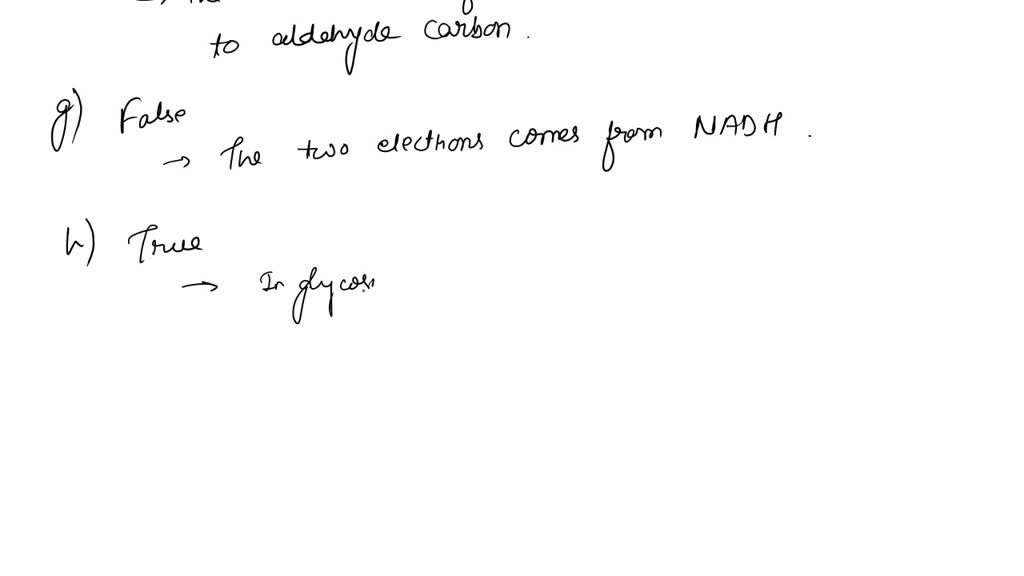 to aldehyde carbon.
g) False
→ The two electhons comes from NADH.
h) True
→ In glycosi